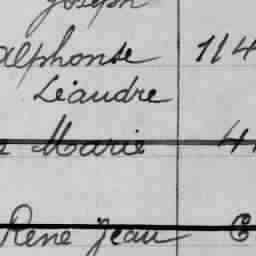 Joseph
alphonse 114
Léandre
Marie 4
René Jean